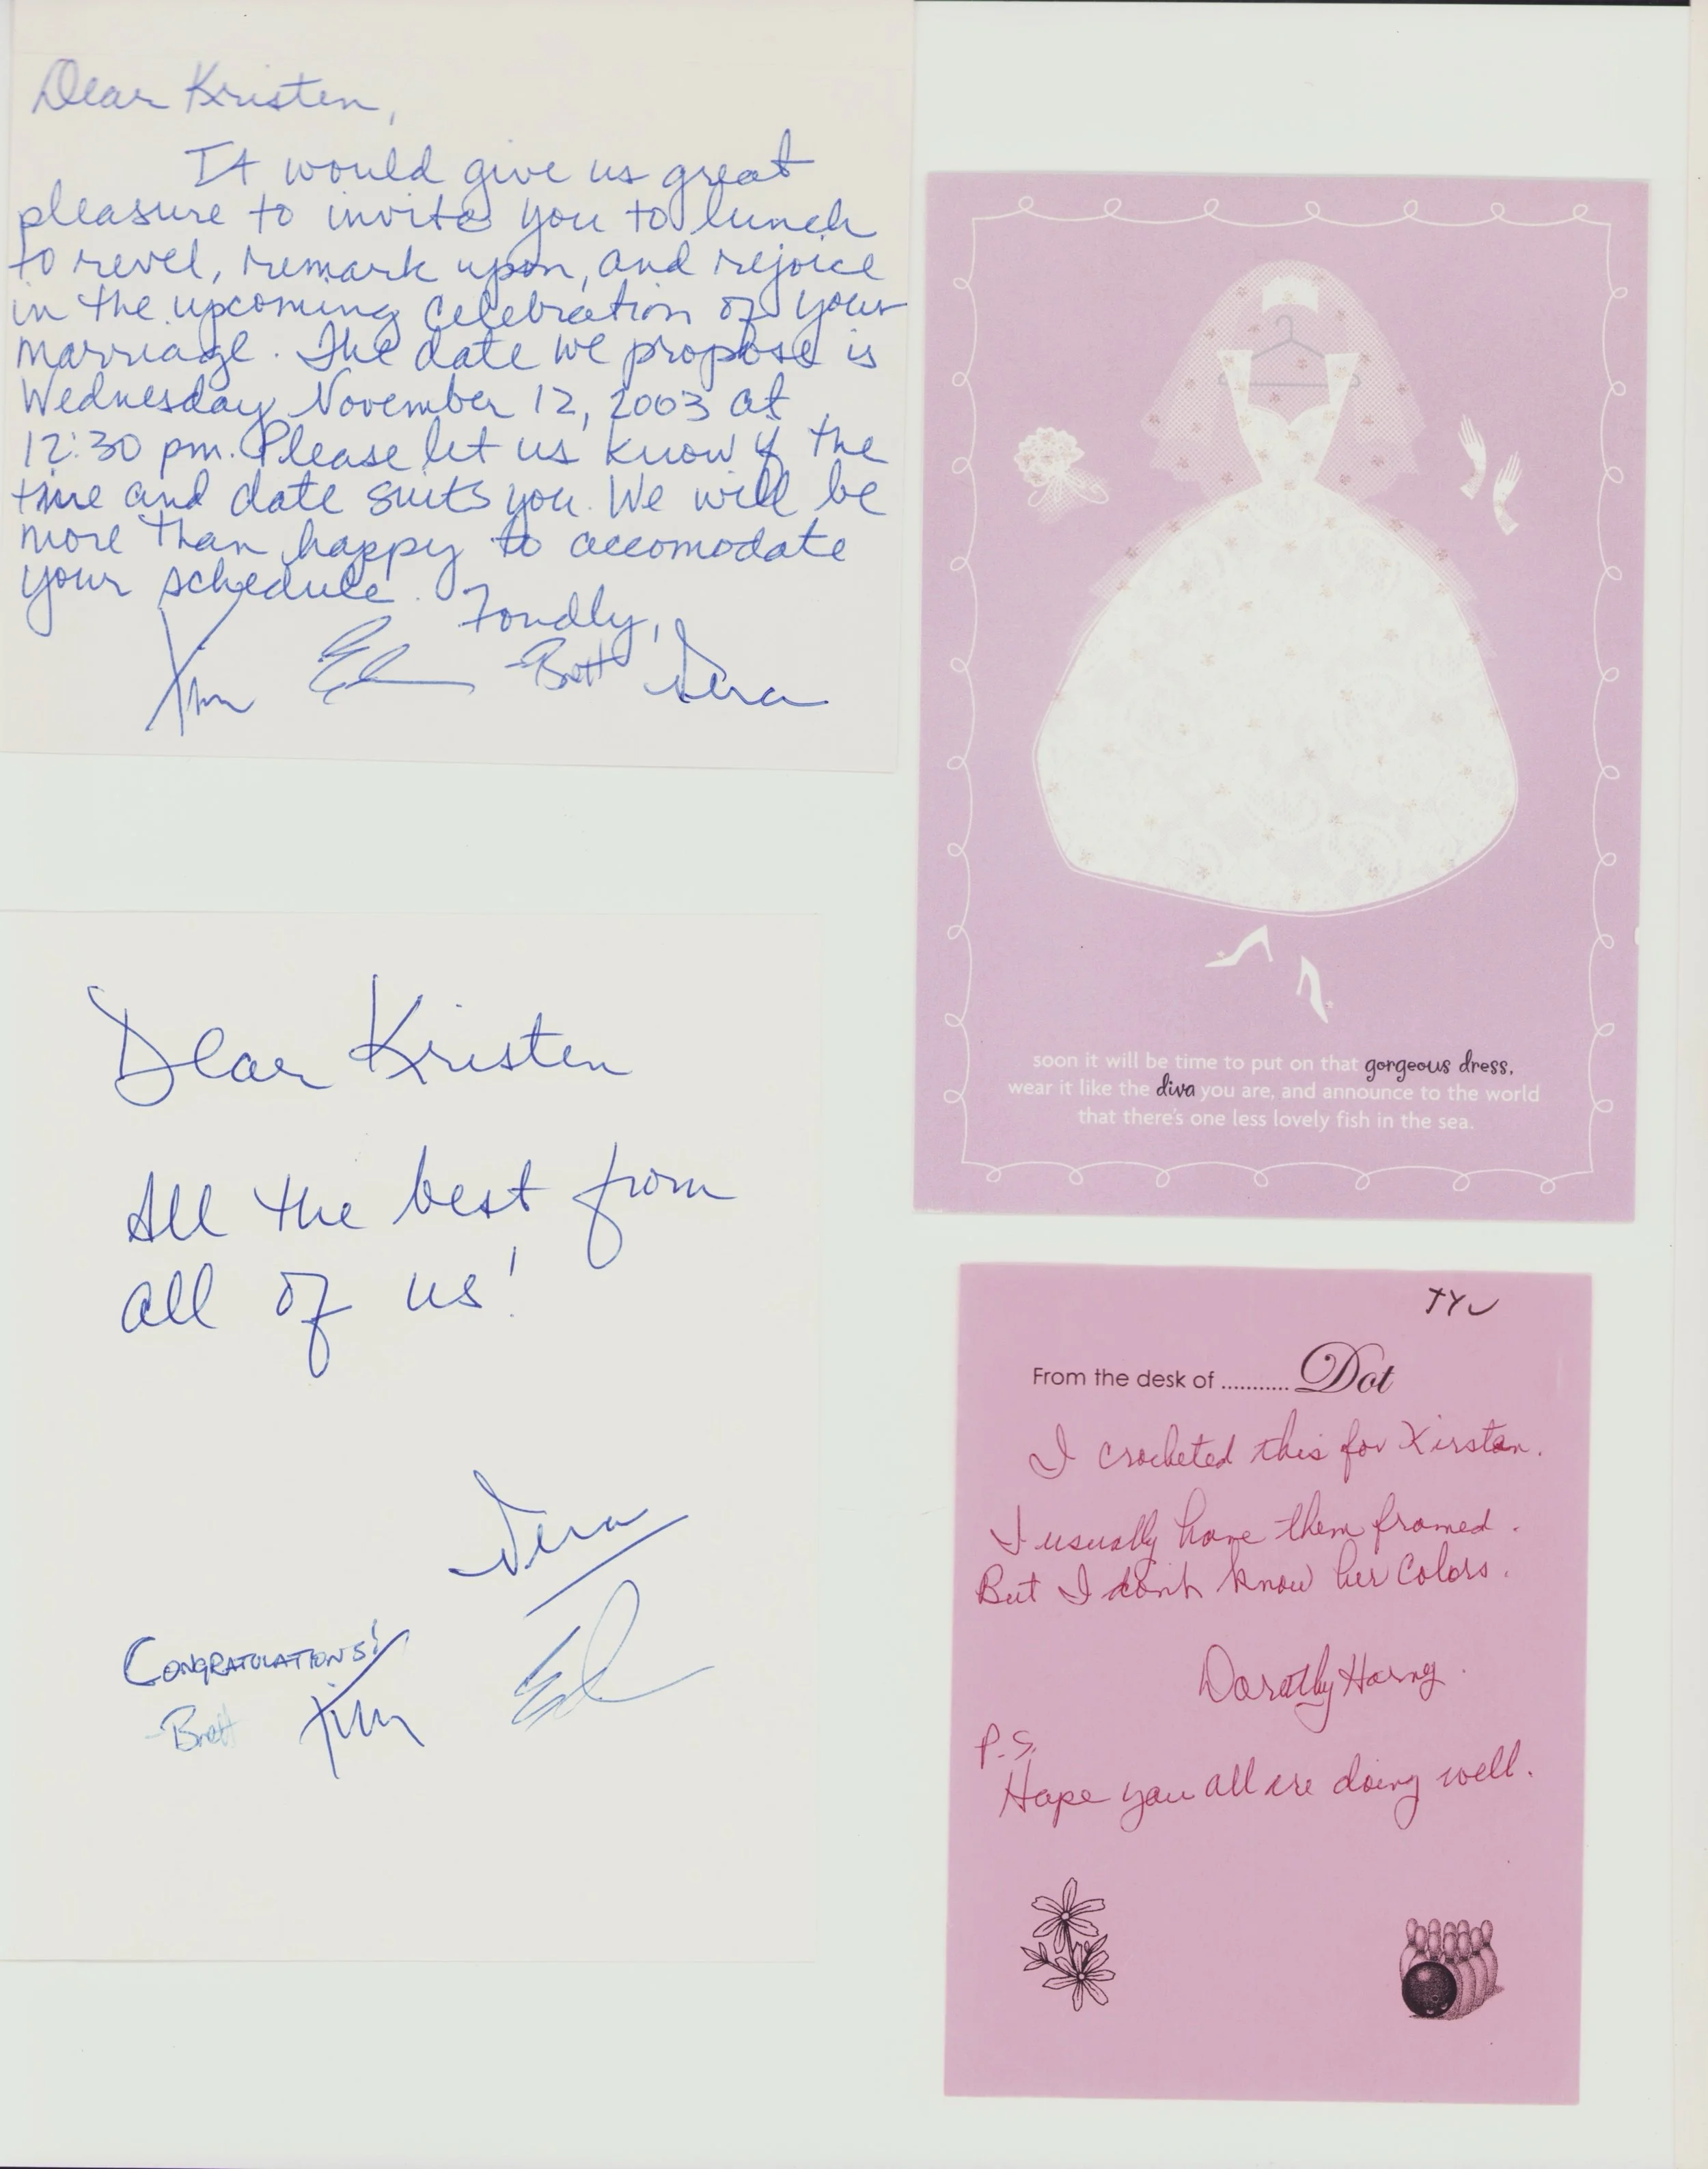 Dear Kristen,
It would give us great
pleasure to invite you to lunch
to revel, remark upon, and rejoice
in the upcoming celebration of your
marriage. The date we propose is
Wednesday November 12, 2003 at
12:30 pm. Please let us know if the
time and date suits you. We will be
more than happy to accomodate
your schedule.
Fondly,
Jim Ed -Brett Vera
Dear Kristen
All the best from
all of us!
Vera
CONGRATULATIONS!
-Brett Jim Ed
soon it will be time to put on that gorgeous dress,
wear it like the diva you are, and announce to the world
that there's one less lovely fish in the sea.
TYU
From the desk of ........... Dot
I crocheted this for Kirsten.
I usually have them framed.
But I don't know her Colors.
Dorothy
P.S.
Hope you all are doing well.